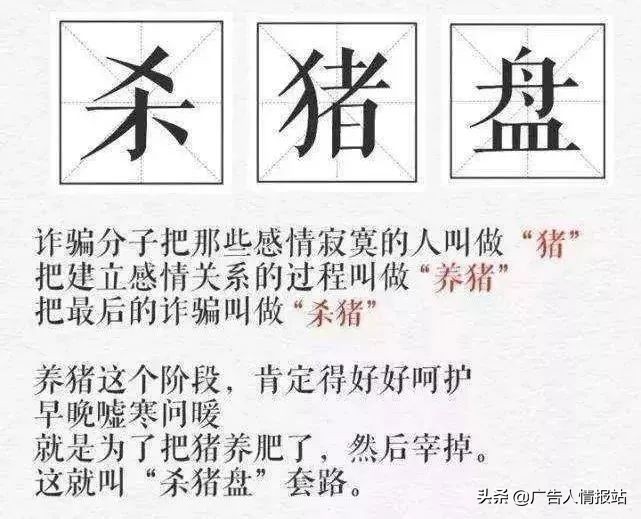 杀猪盘
诈骗分子把那些感情寂寞的人叫做“猪”
把建立感情关系的过程叫做“养猪”
把最后的诈骗叫做“杀猪”
养猪这个阶段，肯定得好好呵护
早晚嘘寒问暖
就是为了把猪养肥了，然后宰掉。
这就叫“杀猪盘”套路。
头条@广告人情报站